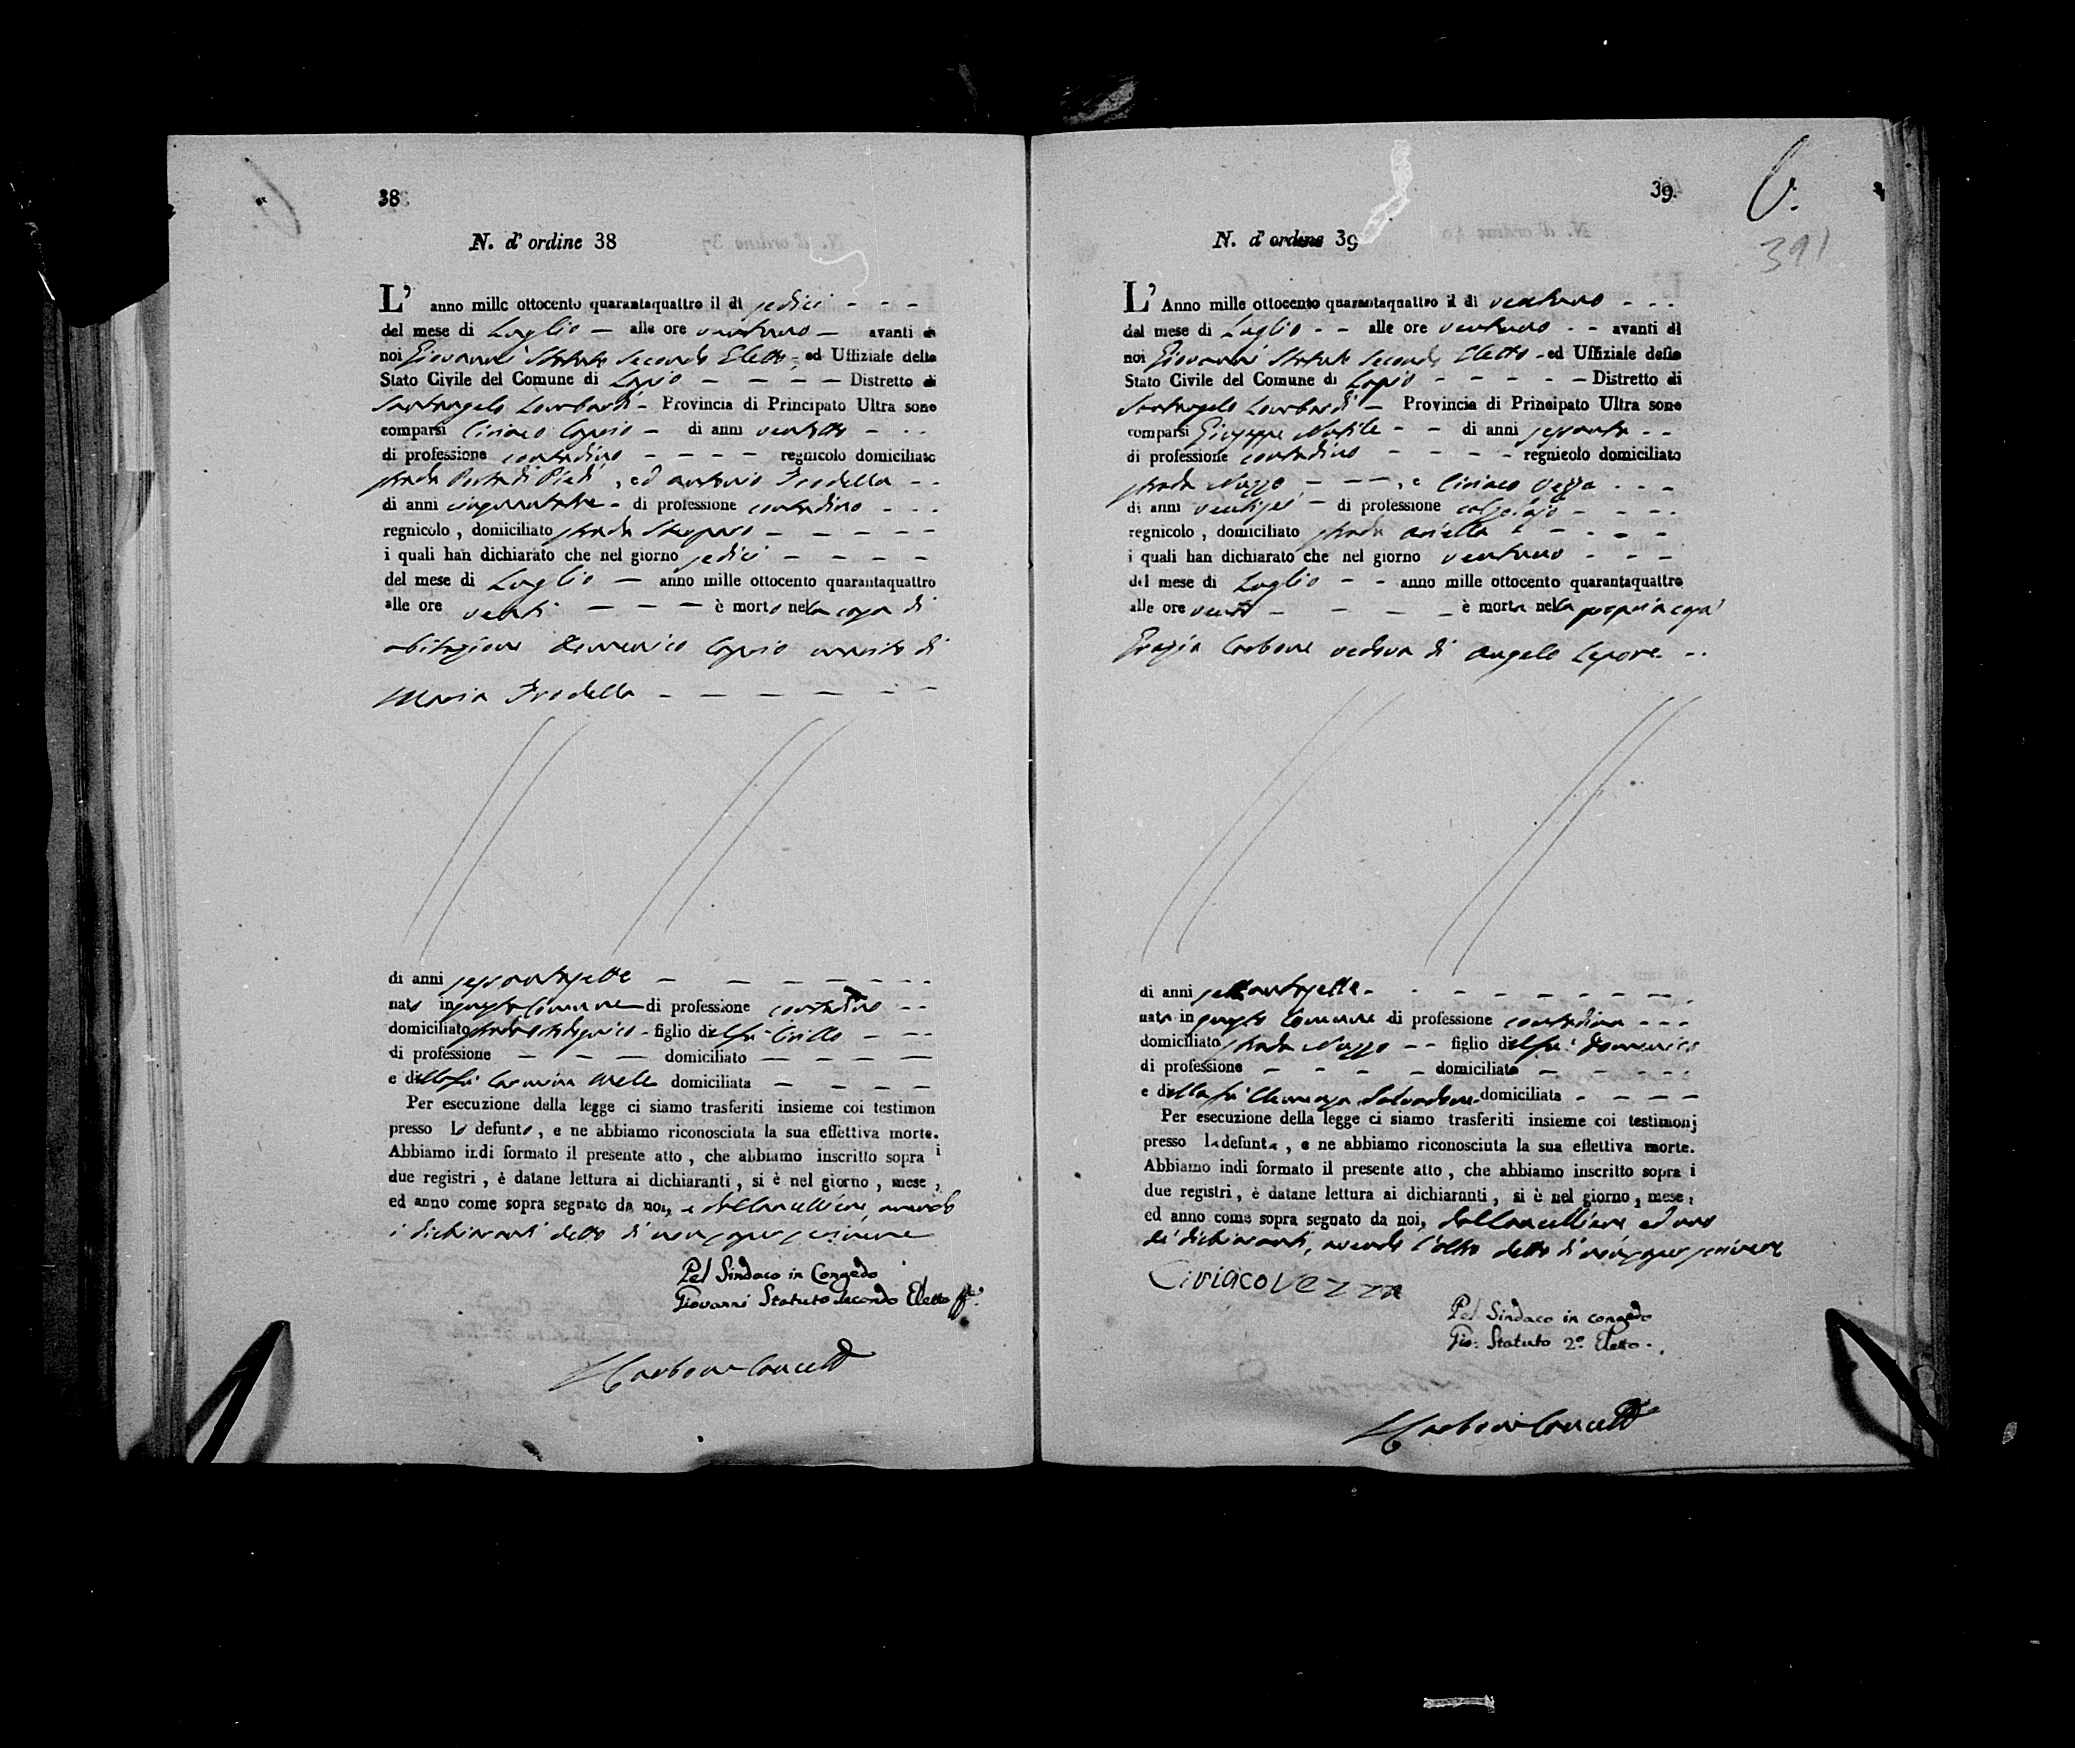 38
N. d' ordine 38
L' anno mille ottocento quarantaquattro il di sedici - - -
del mese di Luglio - alle ore ventuno - avanti di
noi Giovanni Statuto Secondo Eletto - ed Uffiziale dello
Stato Civile del Comune di Lapio - - - - Distretto di
Santangelo Lombardi - Provincia di Principato Ultra sono
comparsi Ciriaco Caprio - di anni ventotto - - -
di professione contadino - - - - regnicolo domiciliato
strada Porta di Piedi, ed Antonio Trodella - -
di anni cinquantatre - di professione contadino - - -
regnicolo, domiciliato strada - - - - -
i quali han dichiarato che nel giorno sedici - - - -
del mese di Luglio - anno mille ottocento quarantaquattro
alle ore venti - - - è morto nella casa di
abitazione Domenico Caprio marito di
Maria Trodella - - - - - -
di anni sessantasette - - - - - - -
nato in questo Comune - di professione contadino - -
domiciliato strada - figlio del fu Cirillo - - -
di professione - - - domiciliato - - - -
e della fu Carmina Mele domiciliata - - - -
Per esecuzione della legge ci siamo trasferiti insieme coi testimon
presso lo defunto, e ne abbiamo riconosciuta la sua effettiva morte.
Abbiamo indi formato il presente atto, che abbiamo inscritto sopra i
due registri, è datane lettura ai dichiaranti, si è nel giorno, mese,
ed anno come sopra segnato da noi, e dal Cancelliere, avendo
i dichiaranti detto di non saper scrivere
Pel Sindaco in Congedo
Giovanni Statuto Secondo Eletto ff.
Carbone Cancell
39.
6.
391
N. d' ordine 39
L' Anno mille ottocento quarantaquattro il di ventuno - - -
del mese di Luglio - - alle ore ventuno - - avanti di
noi Giovanni Statuto Secondo Eletto - ed Uffiziale dello
Stato Civile del Comune di Lapio - - - - - Distretto di
Santangelo Lombardi - Provincia di Principato Ultra sono
comparsi Giuseppe Nutile - - di anni sessanta - -
di professione contadino - - - - regnicolo domiciliato
strada Nuzzo - - -, e Ciriaco Vezza - - -
di anni ventisei - di professione calzolajo - - - -
regnicolo, domiciliato strada Ariella - - - - -
i quali han dichiarato che nel giorno ventuno - - -
del mese di Luglio - - anno mille ottocento quarantaquattro
alle ore venti - - - - è morta nella propria casa
Grazia Carbone vedova di Angelo Lepore - -
di anni settantasette - - - - - - - -
nata in questo Comune di professione contadina - - -
domiciliato strada Nuzzo - - figlio del fu Domenico
di professione - - - - domiciliato - - - - -
e della fu Clemenza Salvadore - domiciliata - - - -
Per esecuzione della legge ci siamo trasferiti insieme coi testimonj
presso la defunta, e ne abbiamo riconosciuta la sua effettiva morte.
Abbiamo indi formato il presente atto, che abbiamo inscritto sopra i
due registri, è datane lettura ai dichiaranti, si è nel giorno, mese,
ed anno come sopra segnato da noi, dal Cancelliere ed uno
de' dichiaranti, avendo l'altro detto di non saper scrivere
Ciriaco Vezza
Pel Sindaco in congedo
Gio: Statuto 2.º Eletto.
Carbone Cancell